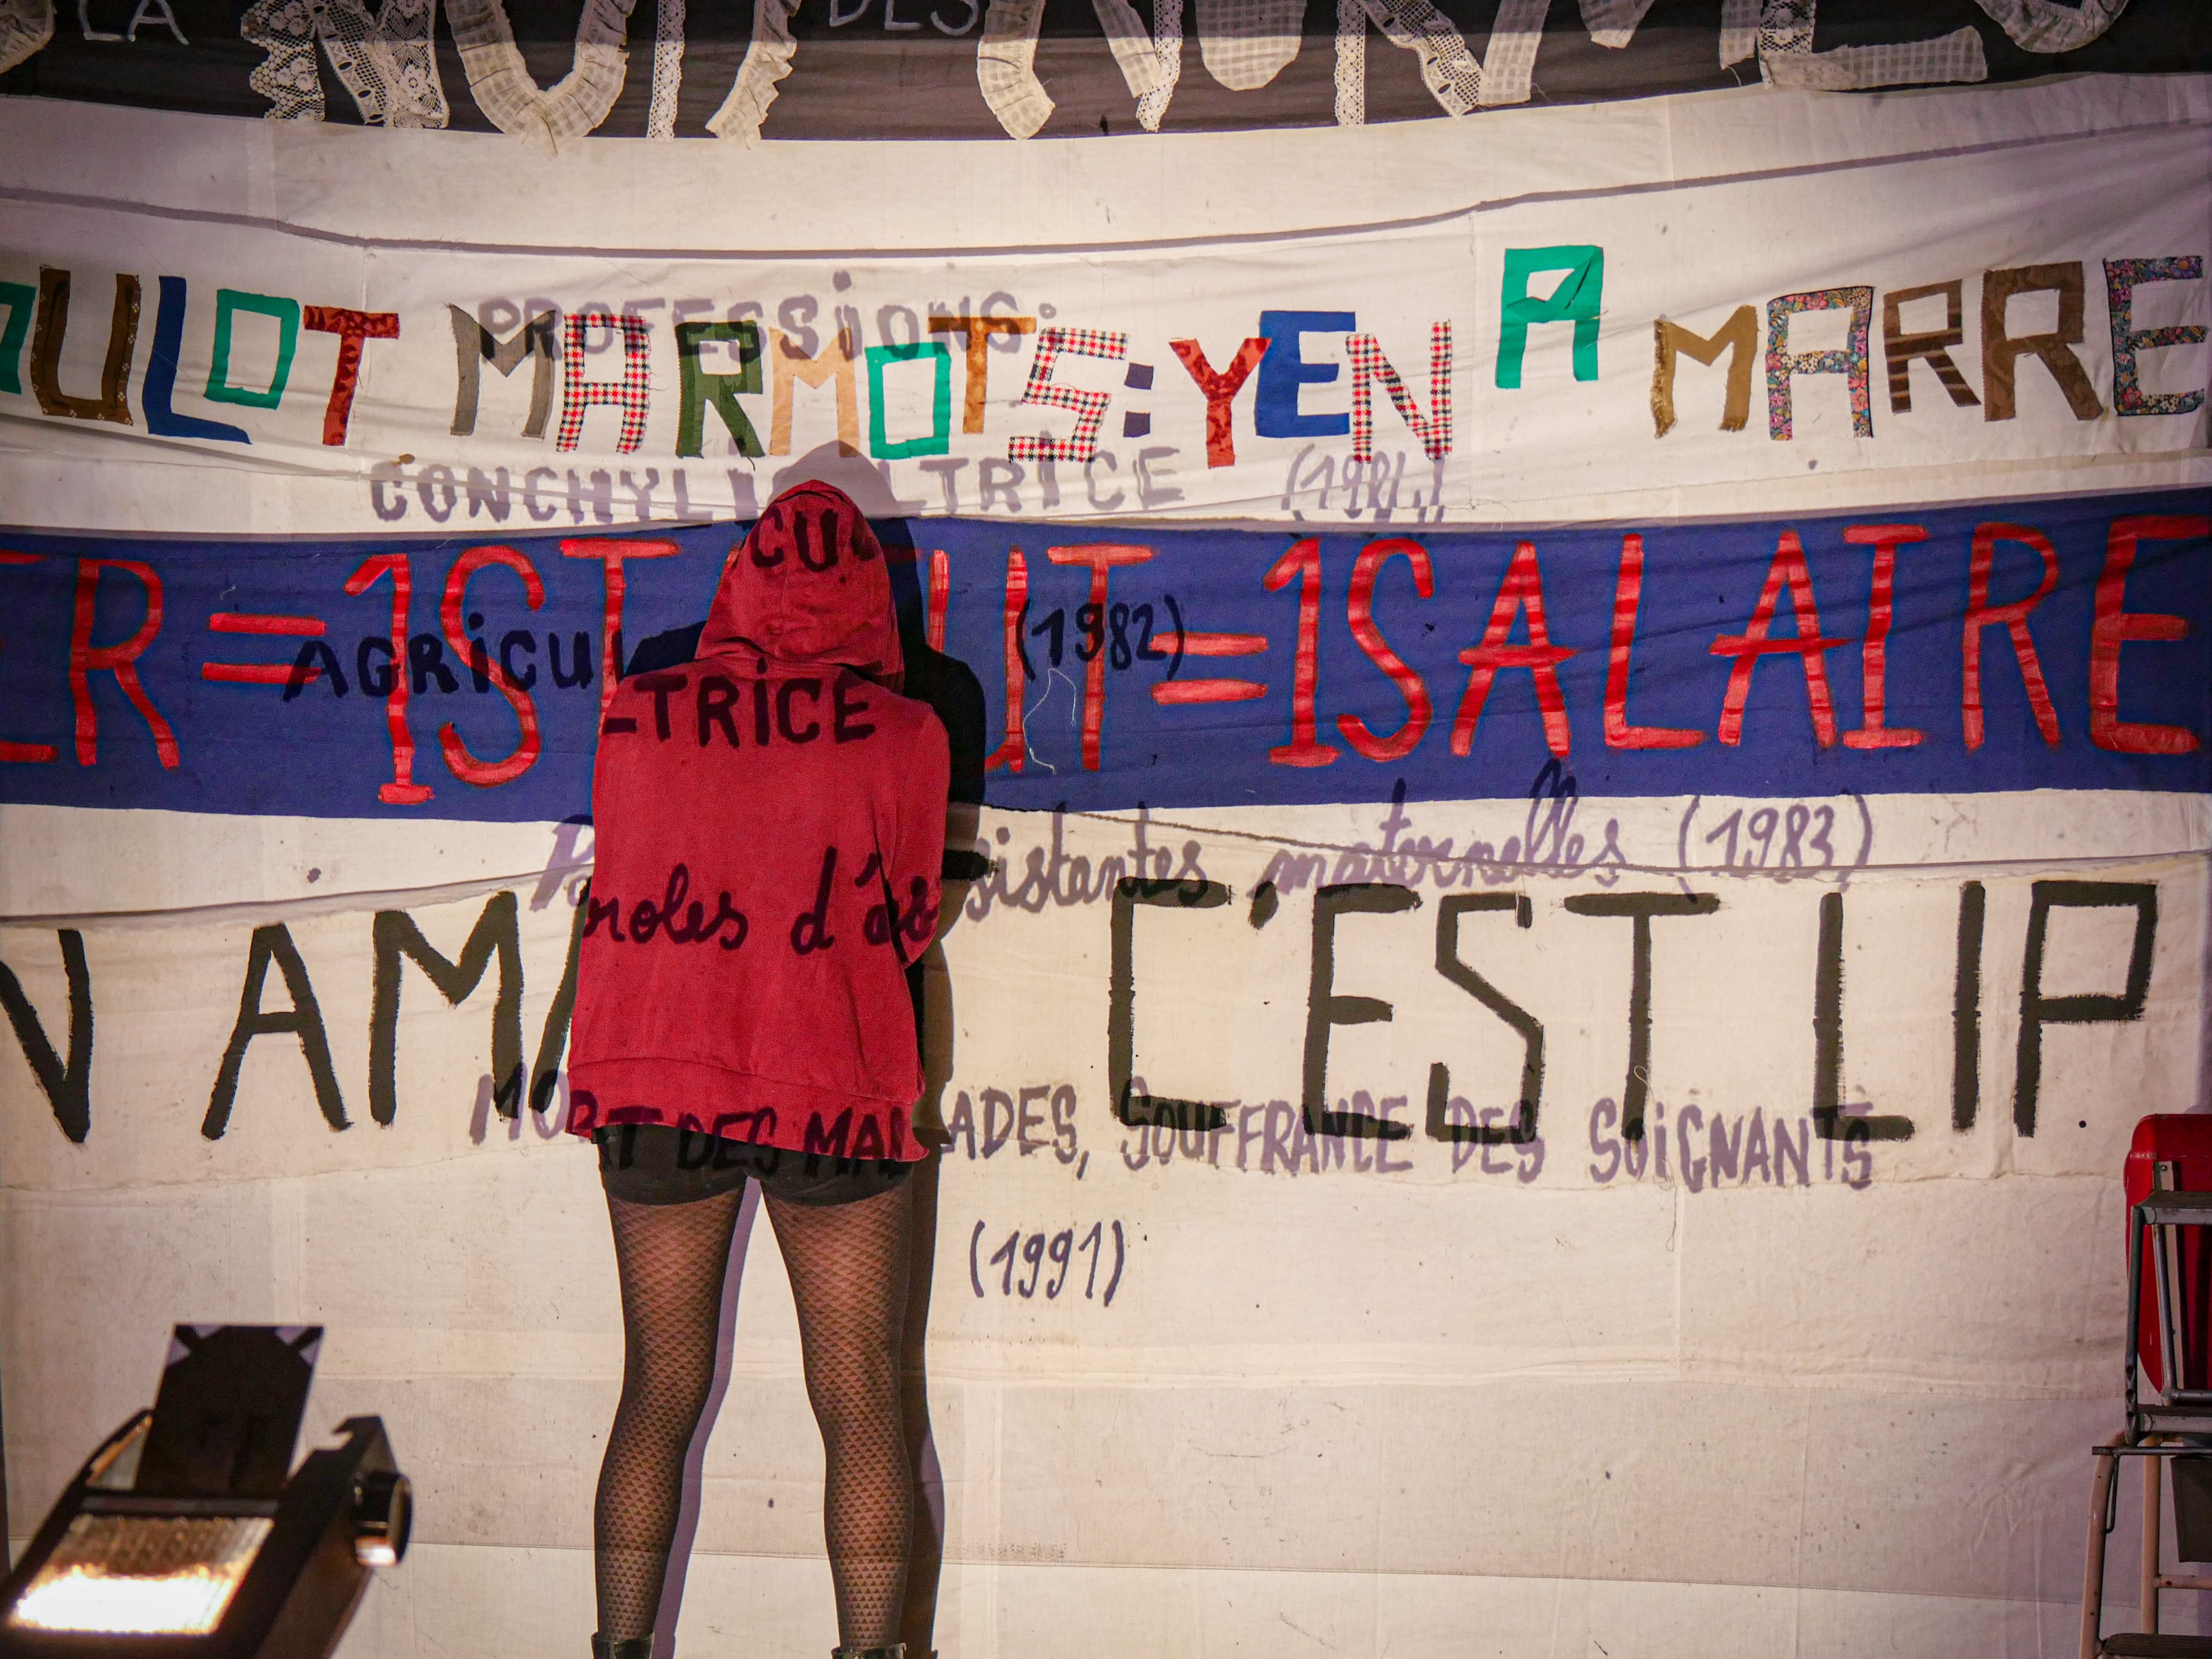 LA DES
OULOT MARMOTS: YEN A MARRE
PROFESSIONS:
CONCHYLICULTRICE
ER = 1 STATUT = 1 SALAIRE
AGRICUL-TRICE (1982)
Paroles d'assistantes maternelles (1983)
C'EST LIP
MORT DES MALADES, SOUFFRANCE DES SOIGNANTS
(1991)